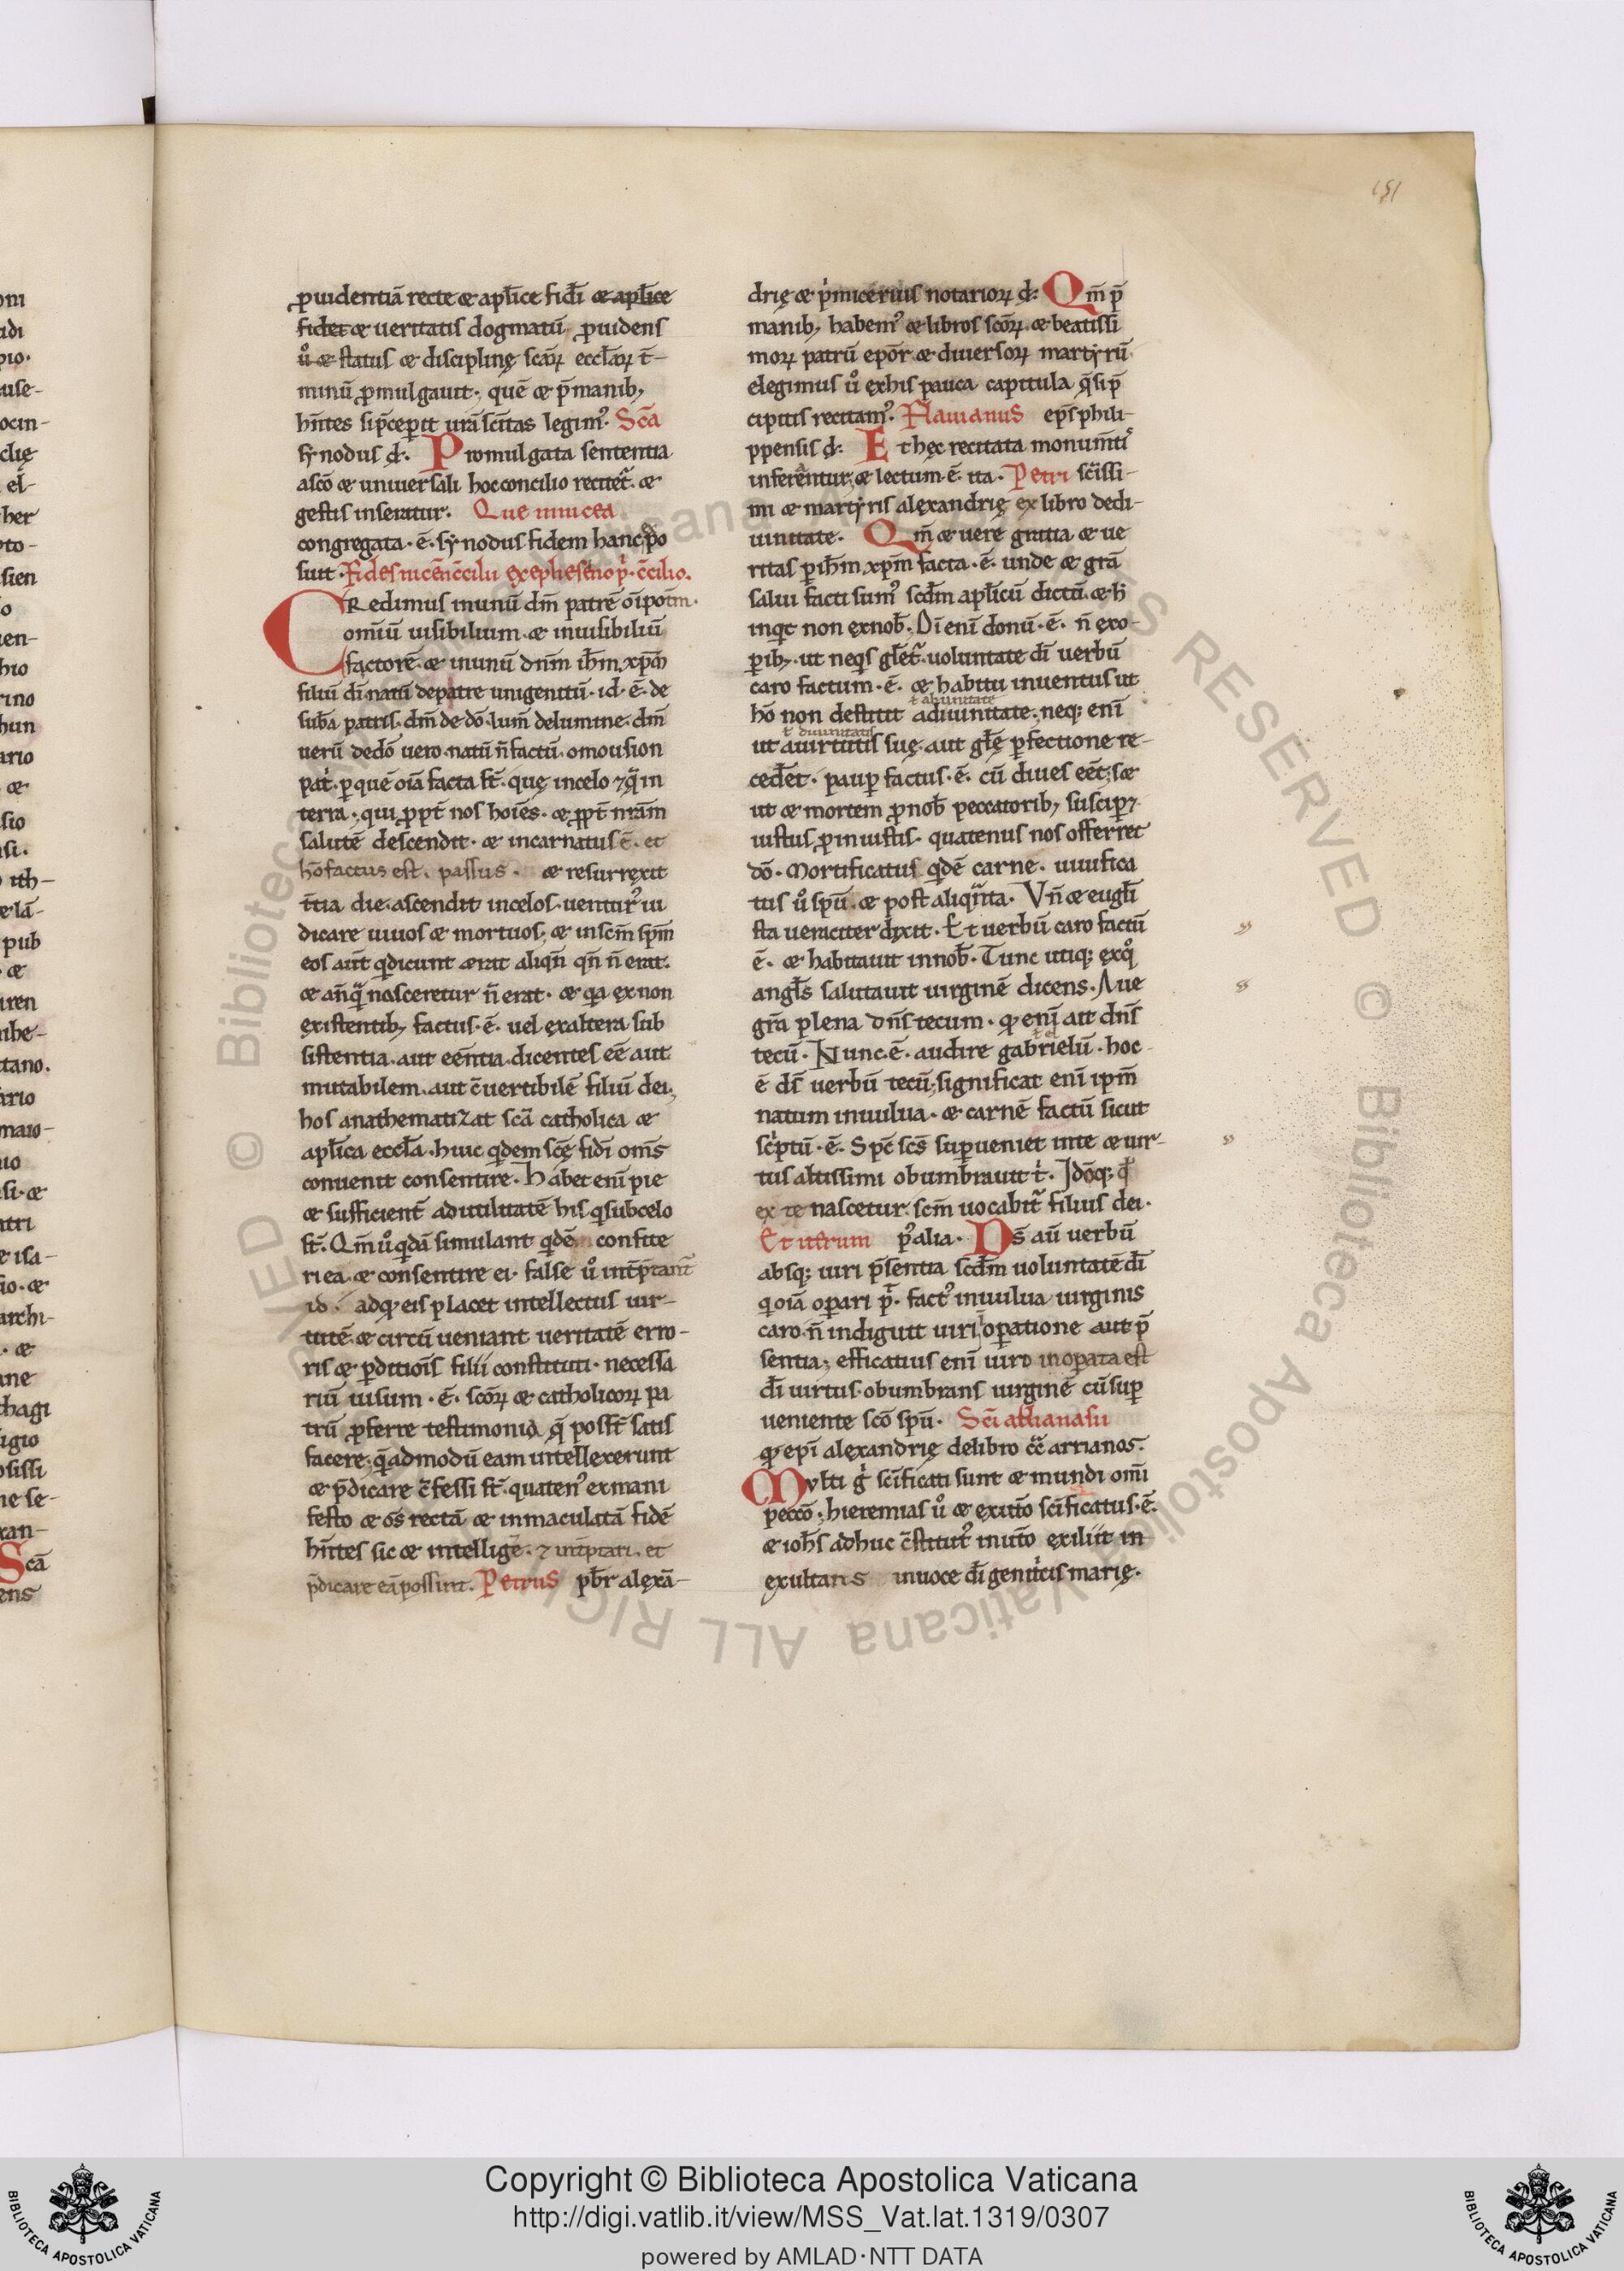 151
ꝓuidentiā recte & apl̄ice fidi & apl̄ice
fidei & ueritatis dogmatū ꝓuidens
ů & status & disciplinę scār̄ ecclār̄ t̄-
minū ꝓmulgauit; quē & p̄manib;
hn̄tes si p̄ceperit urā scītas legim᾿. Scā
synodus d̄. Promulgata sententia
a scō & uniuersali hoc concilio recitet᷑ &
gestis inseratur. Que in nicea
congregata .ē. synodus fidem hanc ꝓpo
suit. Fides nicēni cc̄ilii ex ephesēno p̓. cc̄ilio.
CRedimus in unū dm̄ patrē oīpotm̄.
omīū uisibilium & inuisibiliū
factorē. & in unū dnm̄ ihm̄ xp̄m
filiū dī natū de patre unigenitū. id .ē. de
subā patris. dm̄ de dō. lum̄ de lumine. dm̄
uerū de dō uero. natū n̄ factū. omousion
pat̓. ꝑ quē oīa facta st̄. quę in celo ⁊ q̄ in
terra; qui ꝓpt̄ nos hoīēs. & ꝓpt̄ nrām
salutē descendit. & incarnatus ē. et
hō factus est. passus. & resurrexit
t̄tia die. ascendit in celos. uentur᾿ iu
dicare uiuos & mortuos; & in scm̄ spm̄
eos aut̄ q dicunt erat aliqn̄ qn̄ n̄ erat.
& anq̄ nasceretur n̄ erat. & qa ex non
existentib; factus .ē. uel ex altera sub
sistentia. aut eēntia. dicentes eē aut
mutabilem. aut c̄uertibilē filiū dei;
hos anathematizat scā catholica &
apl̄ica eccl̄a. huic qdem scē fidī om̄s
conuenit consentire. Habet enī pie
& sufficient̄ ad utilitatē his q sub celo
st̄. Qm̄ ů qdā simulant qdē confite
ri ea. & consentire ei. false ů int̄p̄tant᷑
id. ad q̄ eis placet intellectus uir-
tutē. & circū ueniant ueritatē erro-
ris & ꝑditiōis filii constituti. necessa
riū uisum .ē. scōr̄ & catholicor̄ pa
trū ꝓferre testimonia. q̄ poss̄t satis
facere; q̄ admodū eam intellexerunt
& p̄dicare c̄fessi st̄. quaten᾿ ex mani
festo & oōs rectā & inmaculatā fidē
hn̄tes sic & intelligē. ⁊ int̄p̄tari. et
p̄dicare eā possint. Petrus pb̄r alexā-
drię & p̓micerius notarior̄ d̄: Qm̄ p̄
manib; habem᾿ & libros scōr̄. & beatissi
mor̄ patrū epōr̄ & diuersor̄ martyrū
elegimus ů ex his pauca capitula q̄ si p̄
cipitis recitam᾿. Flauianus ep̄s phili-
ppensis d̄: Et hęc recitata monum̄tis
inferentur; & lectum .ē. ita. Petri scīssi-
mi & martyris alexandrię ex libro de di-
uinitate. Qm̄ & uere gratia & ue
ritas ꝑ ihm̄ xpm̄ facta .ē. unde & grā
salui facti sum᾿ scdm̄ apl̄icū dictū. & h̓
inqt non ex nob̄. Dī enī donū .ē. n̄ ex o-
ꝑib;. ut neqs gl̄et᷑. uoluntate dī uerbū
caro factum .ē. & habitu inuentus ut
ł ab unitate
hō non destitit a diuinitate; neq; enī
ł diuinitatis
ut a uirtutis suę aut gl̄ę ꝑfectione re-
cederet. pauꝑ factus .ē. cū diues eēt; s&
ut & mortem ꝓ nob̄ peccatorib; susciꝑ&
iustus ꝓ iniustis. quatenus nos offerret
dō. Mortificatus qdē carne. uiuifica
tus ů spū. & post aliqn̄ta. Vn̄ & eugl̄i
sta ueraciter dixit. Et uerbū caro factū
ē. & habitauit in nob̄. Tunc utiq; exq̊
angl̄s salutauit uirginē dicens. Aue
grā plena dn̄s tecum. q̄ enī ait dn̄s
tecū. Nunc .ē. audire gabrielū. hoc
ē dī uerbū tecū; significat enī ipm̄
natum in uulua. & carnē factū sicut
sc̓ptū .ē. Spc̄ scs̄ suꝑueniet in te & uir-
tus altissimi obumbrauit t̓. Idōq; qd̄
ex te nascetur scm̄ uocabit᷑ filius dei.
Et iterum p᾿ alia. Ds̄ aū uerbū
absq; uiri p̄sentia scdm̄ uoluntatē dī
q oīa oꝑari p̄. fact᾿ in uulua uirginis
caro. n̄ indiguit uiri oꝑatione aut p̄
sentia; efficatius enī uiro inoꝑata est
dī uirtus obumbrans uirginē cū suꝑ
ueniente scō spū. Scī athanasii
q̄ epī alexandrię de libro cc̄ arrianos.
Mvlti g̓ scīficati sunt & mundi om̄i
peccō; hieremias ů & ex utō scīficatus .ē.
& ioh̄s adhuc c̄stitut᾿ in utō exiliit in
exultans in uoce dī genit̓cis marię.
Copyright © Biblioteca Apostolica Vaticana
http://digi.vatlib.it/view/MSS_Vat.lat.1319/0307
powered by AMLAD·NTT DATA
BIBLIOTECA APOSTOLICA VATICANA
BIBLIOTECA APOSTOLICA VATICANA